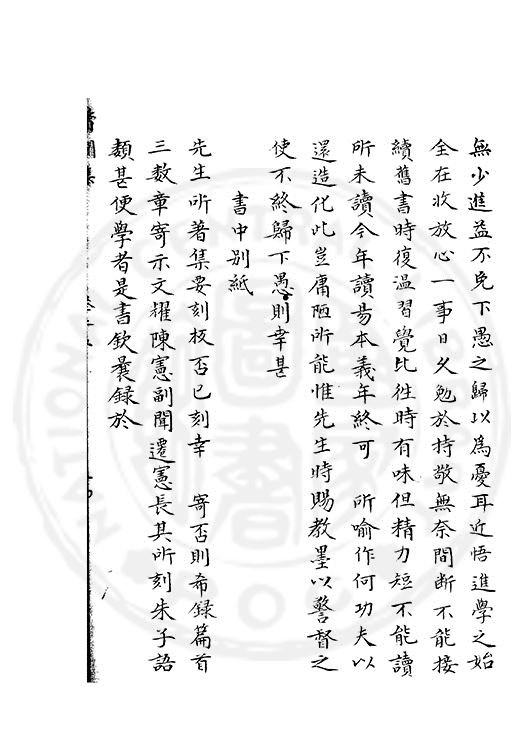 無少進益不免下愚之歸以為憂耳近悟進學之始
全在收放心一事日夕勉於持敬無奈間斷不能接
續舊書時復溫習覺比徃時有味但精力短不能讀
所未讀今年讀昜本義年終可　所喻作何功夫以
還造化此豈庸陋所能惟先生時賜教墨以警督之
使不終歸下愚則幸甚
書中别紙
先生所著集要刻板否已刻幸　寄否則希録篇首
三数章寄示文耀陳憲副聞遷憲長其所刻朱子語
類甚便學者是書欽曩録於